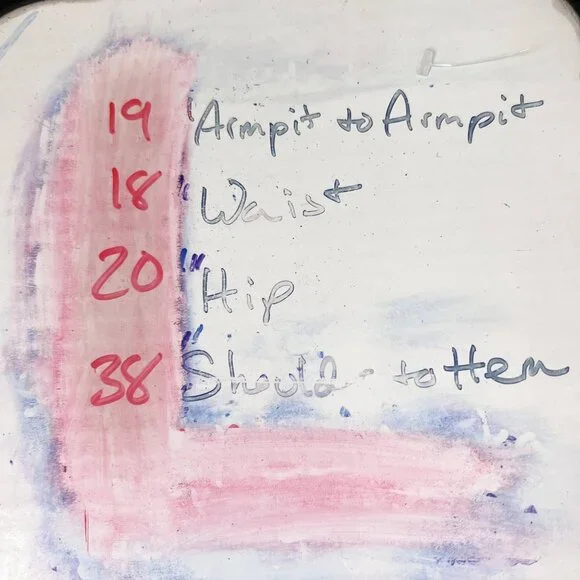 19 "Armpit to Armpit
18 "Waist
20 "Hip
38 "Shoulder to Hem